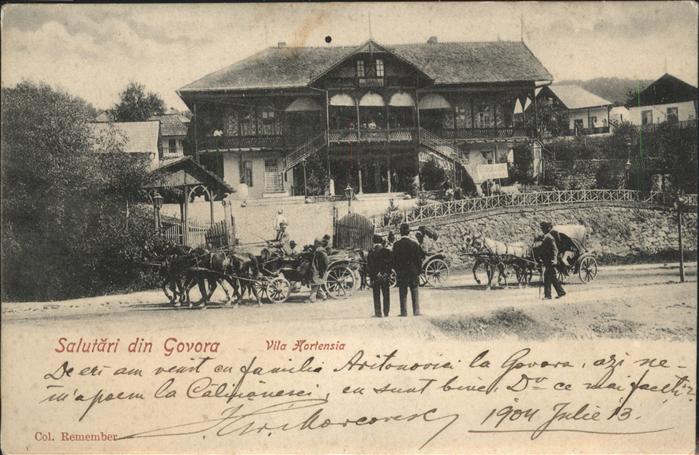 Salutări din Govora Vila Hortensia
De eri am venit cu familia Aritonovici la Govora, azi ne-
'napoem la Călimănesci, eu sunt bine, Dta ce mai faceți?
1904 Julie 13.
Col. Remember